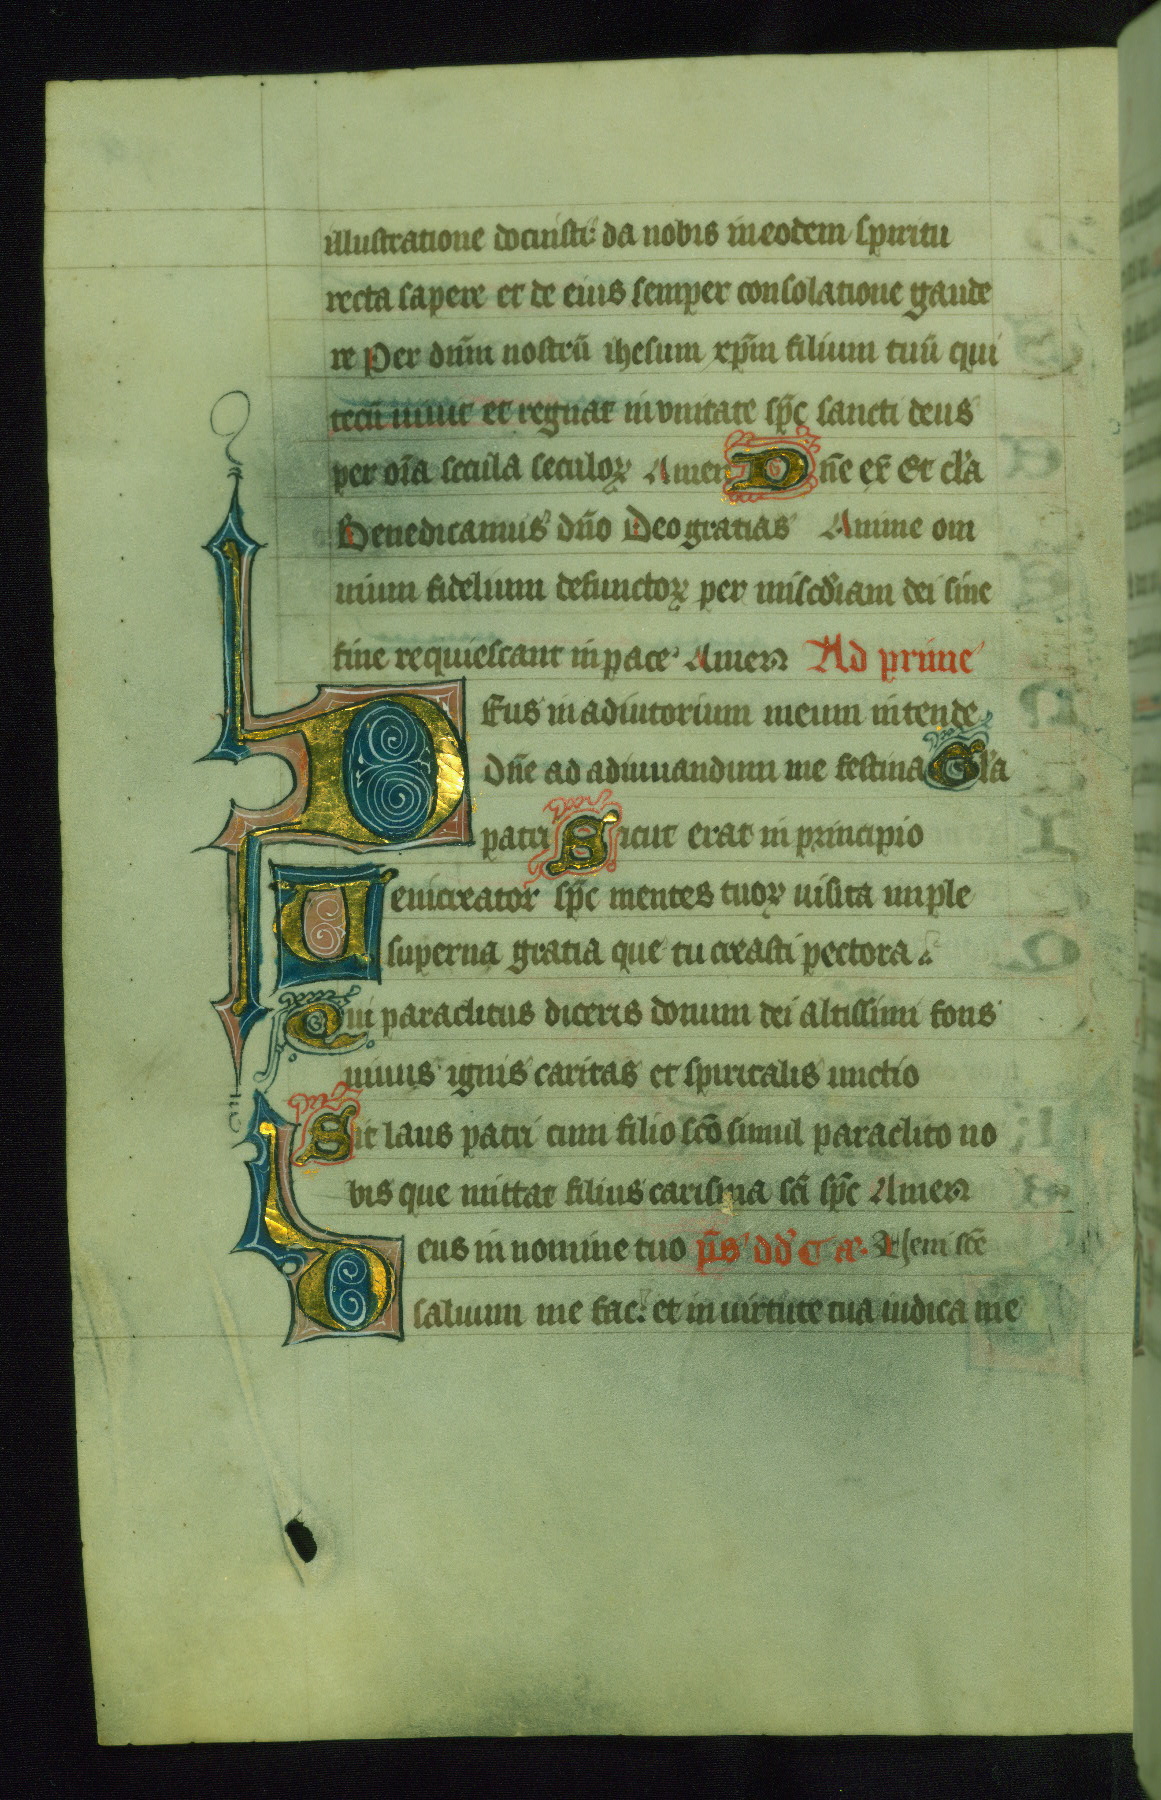 illustratione docuisti: da nobis in eodem spiritu
recta sapere et de eius semper consolatione gaude
re Per dn̄m nostrū ihesum xp̄m filium tuū qui
tecū uiuit et regnat in vnitate sp̄c sancti deus
per oīa secula seculoꝝ Amen Dn̄e ex̄ Et cl'a
Benedicamus dn̄o Deo gratias Anime om
nium fidelium defunctoꝝ per misc̄diam dei sine
fine requiescant in pace Amen Ad prime
Deus in adiutorium meum intende
Dn̄e ad adiuuandum me festina Gl'a
patri Sicut erat in principio
Ueni creator sp̄c mentes tuoꝝ uisita imple
superna gratia que tu creasti pectora
Qui paraclitus diceris donum dei altissimi fons
uiuus ignis caritas et spiritalis unctio
Sit laus patri cum filio scō simul paraclito no
bis que mittat filius carisma sc̄i sp̄c Amen
Deus in nomine tuo p̄s dd̄
saluum me fac: et in uirtute tua iudica me